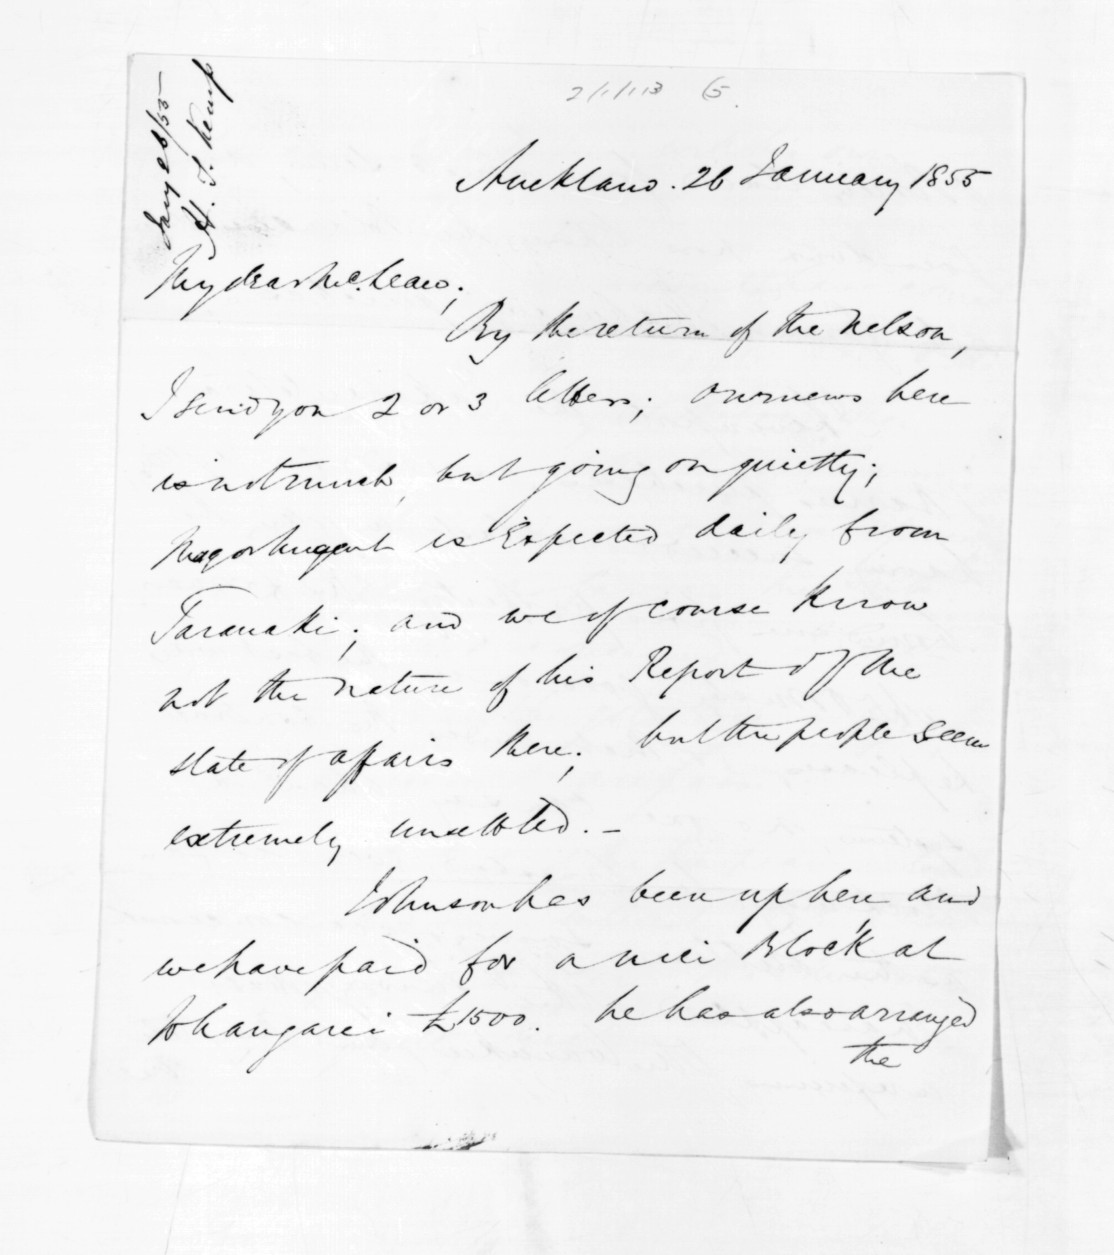 2/1/113 (5.
Jany 26/55
H. T. Kemp
Auckland. 26 January 1855
My dear McLean;
By the return of the Nelson,
I send you 2 or 3 letters; our news here
is not much, but going on quietly;
Major Nugent is Expected daily from
Taranaki; and we of course know
not the nature of his Report of the
state of affairs there; but the people seem
extremely unsettled. -
Johnson has been up here and
we have paid for a nice Block at
Whangarei £1500. he has also arranged
the